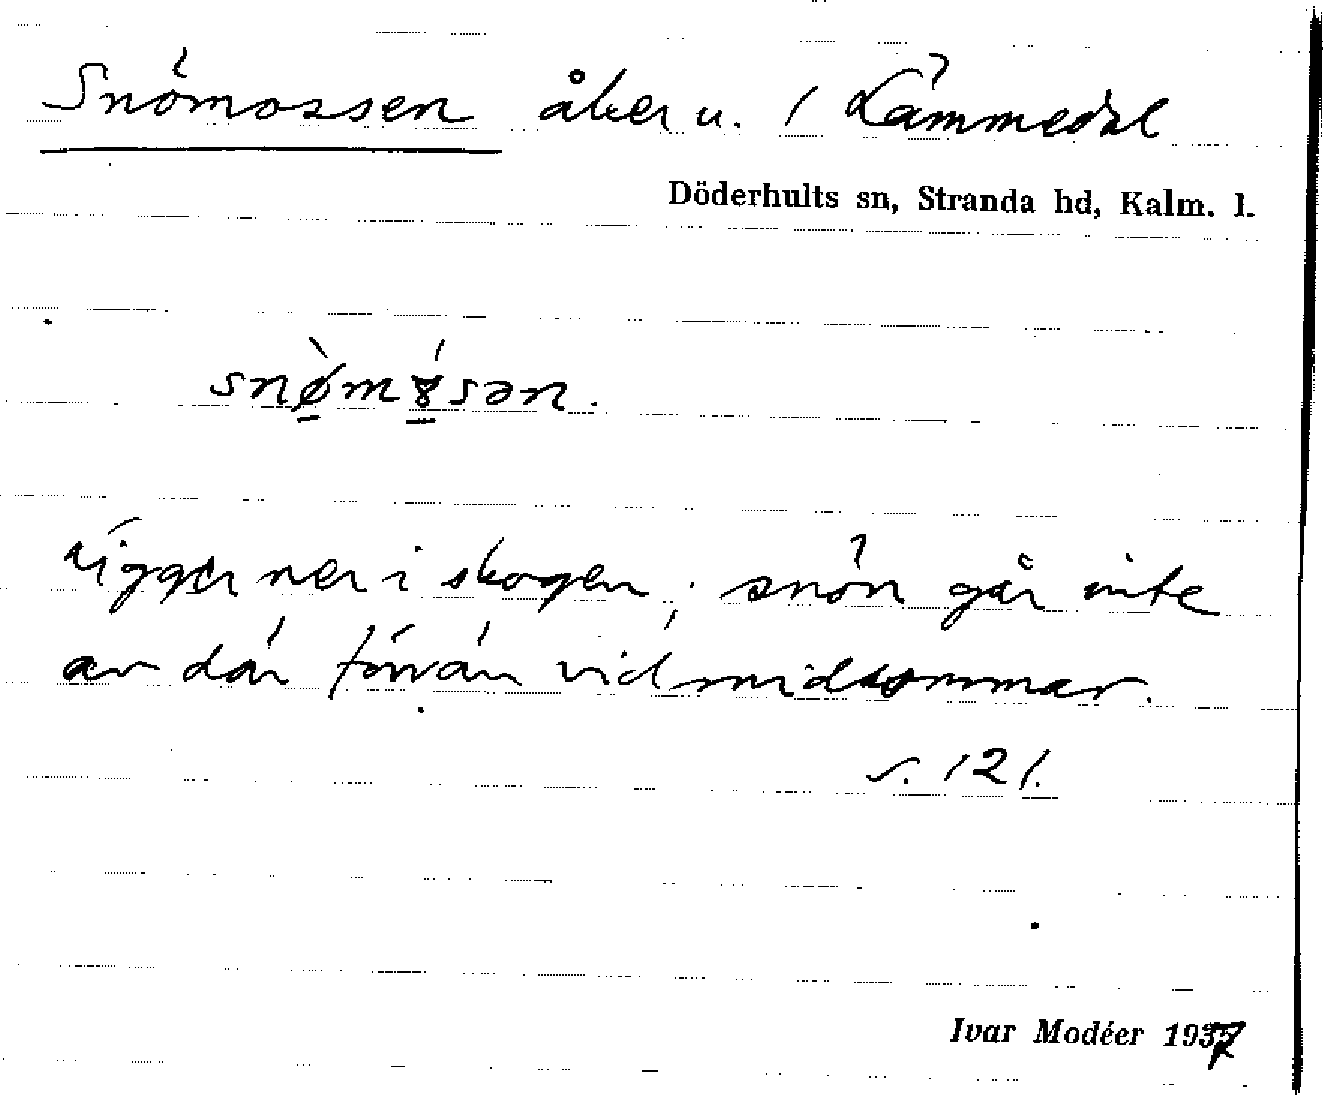 Snömossen åker u. / Lämmedal
Döderhults sn, Stranda hd, Kalm. l.
snø̀mɤ́sən.
ligger ner i skogen; snön går inte
av där förrän vid midsommar.
s. 121.
Ivar Modéer 1937